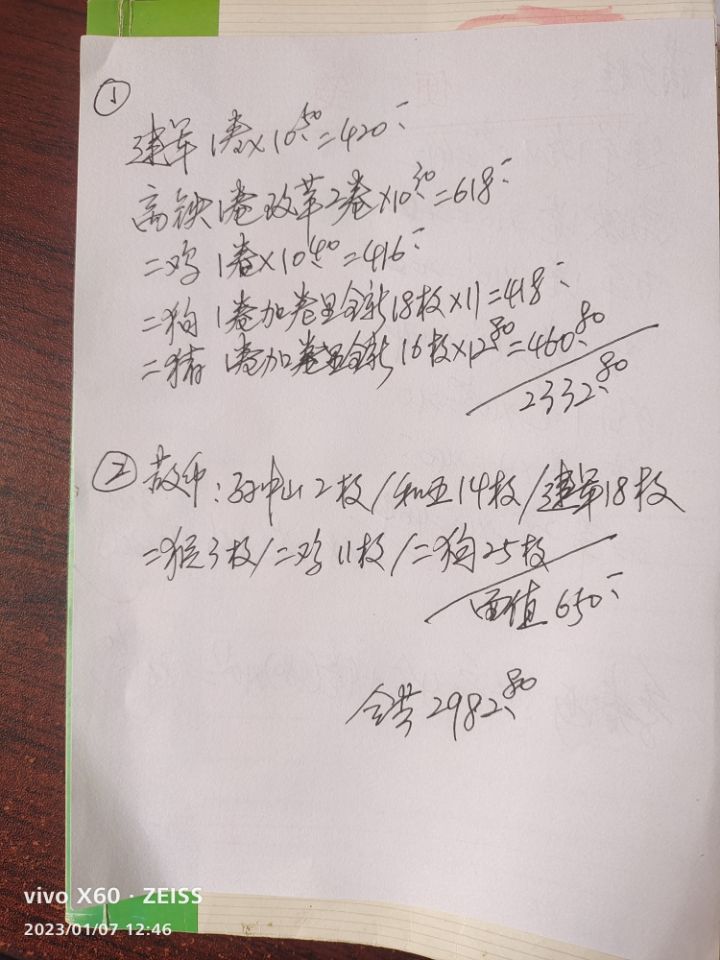 ①
建军1卷×10.50=420.-
高铁1卷改革2卷×10.30=618.-
二鸡1卷×10.40=416.-
二狗1卷加卷里全新18枚×11=418.-
二猪1卷加卷里全新16枚×12.80=460.80
2332.80
② 散币:孙中山2枚/和五14枚/建军18枚
二猴3枚/二鸡11枚/二狗25枚
面值650.-
合共2982.80
vivo X60 · ZEISS
2023/01/07 12:46